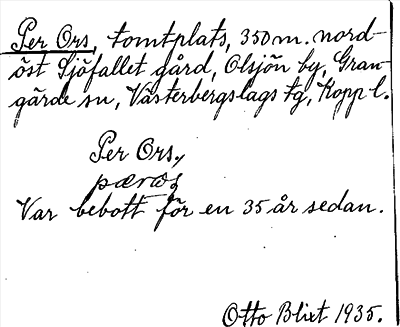 Per Ors, tomtplats, 350 m. nord-
öst Sjöfallet gård, Olsjön by, Gran-
gärde sn, Västerbergslags tg, Kopp l.
Per Ors,
pæros
Var bebott för en 35 år sedan.
Otto Blixt 1935.